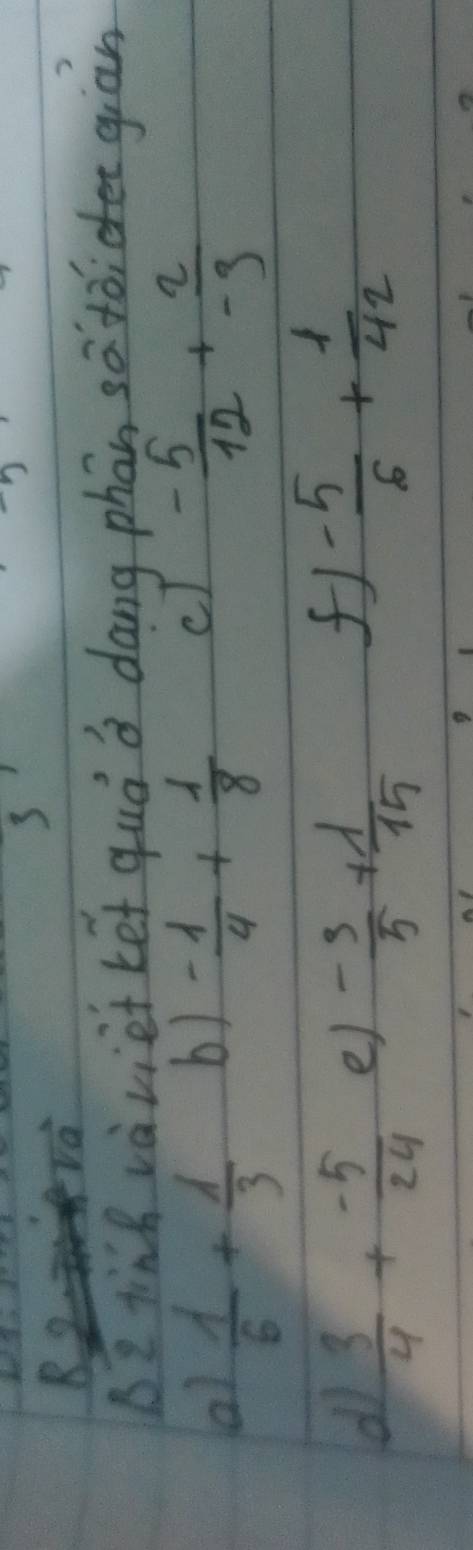 B2 tính và viết kết quả ở dạng phân số tối đơn giản
a) 1/6 + 1/3 b) -1/4 + 1/8 c) -5/12 + 2/-3
d) 3/4 + -5/24 e) -3/5 + 1/15 f) -5/6 + 1/42